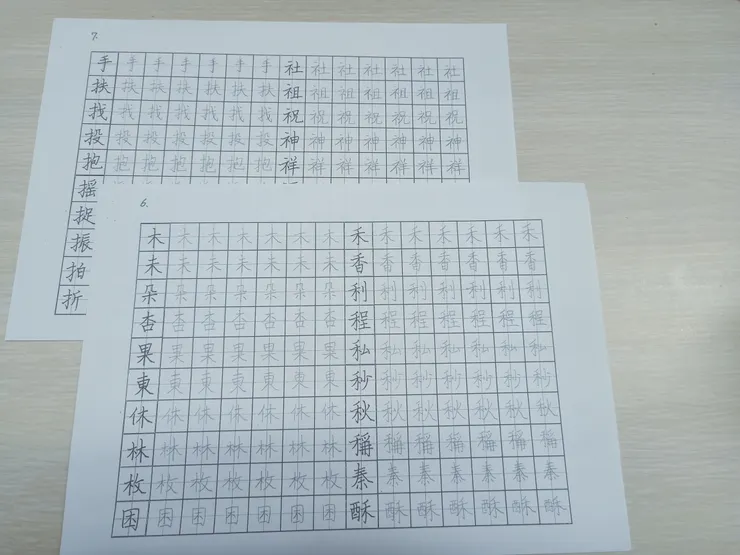 7.
手手手手手手手社社社社社社社
扶扶扶扶扶扶扶祖祖祖祖祖祖祖
找找找找找找找祝祝祝祝祝祝祝
投投投投投投投神神神神神神神
抱抱抱抱抱抱抱祥祥祥祥祥祥祥
摇
捉
振
拍
折
6.
木木木木木木木禾禾禾禾禾禾禾
未未未未未未未香香香香香香香
朵朵朵朵朵朵朵利利利利利利利
杏杏杏杏杏杏杏程程程程程程程
果果果果果果果私私私私私私私
東東東東東東東秒秒秒秒秒秒秒
休休休休休休休秋秋秋秋秋秋秋
林林林林林林林稱稱稱稱稱稱稱
枚枚枚枚枚枚枚秦秦秦秦秦秦秦
困困困困困困困酥酥酥酥酥酥酥